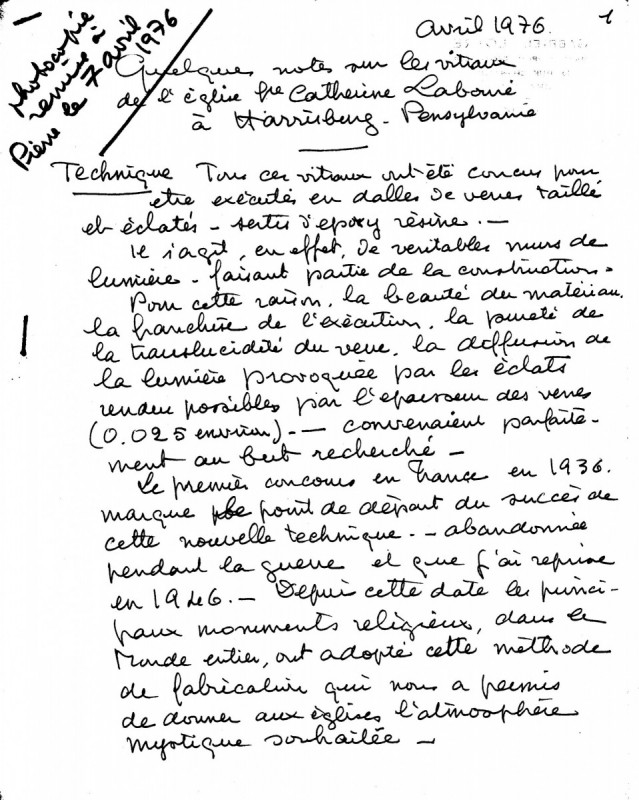 photocopie
remise à
Pierre le 7 avril
1976
avril 1976.
1
Quelques notes sur les vitraux
de l'église Ste Catherine Labouré
à Harrisburg - Pensylvanie
Technique Tous ces vitraux ont été concus pour
etre exécutés en dalles de verres taillé
et éclatés - sertis d'epoxy résine. -
Il s'agit, en effet, de veritables murs de
lumière - faisant partie de la construction.
Pour cette raison, la beauté du matériau,
la franchise de l'exécution, la pureté de
la translucidité du verre, la diffusion de
la lumière provoquée par les éclats
rendus possibles par l'epaisseur des verres
(0.025 environ). - convenaient parfaite-
ment au but recherché -
Le premier concours en France en 1936.
marque le point de départ du succès de
cette nouvelle technique. - abandonnée
pendant la guerre et que j'ai reprise
en 1946. - Depuis cette date les princi-
paux monuments religieux, dans le
Monde entier, ont adopté cette méthode
de fabrication qui nous a permis
de donner aux églises l'atmosphère
mystique souhaitée -